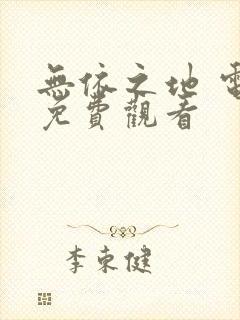 無依之地 電
免費觀看
李東健